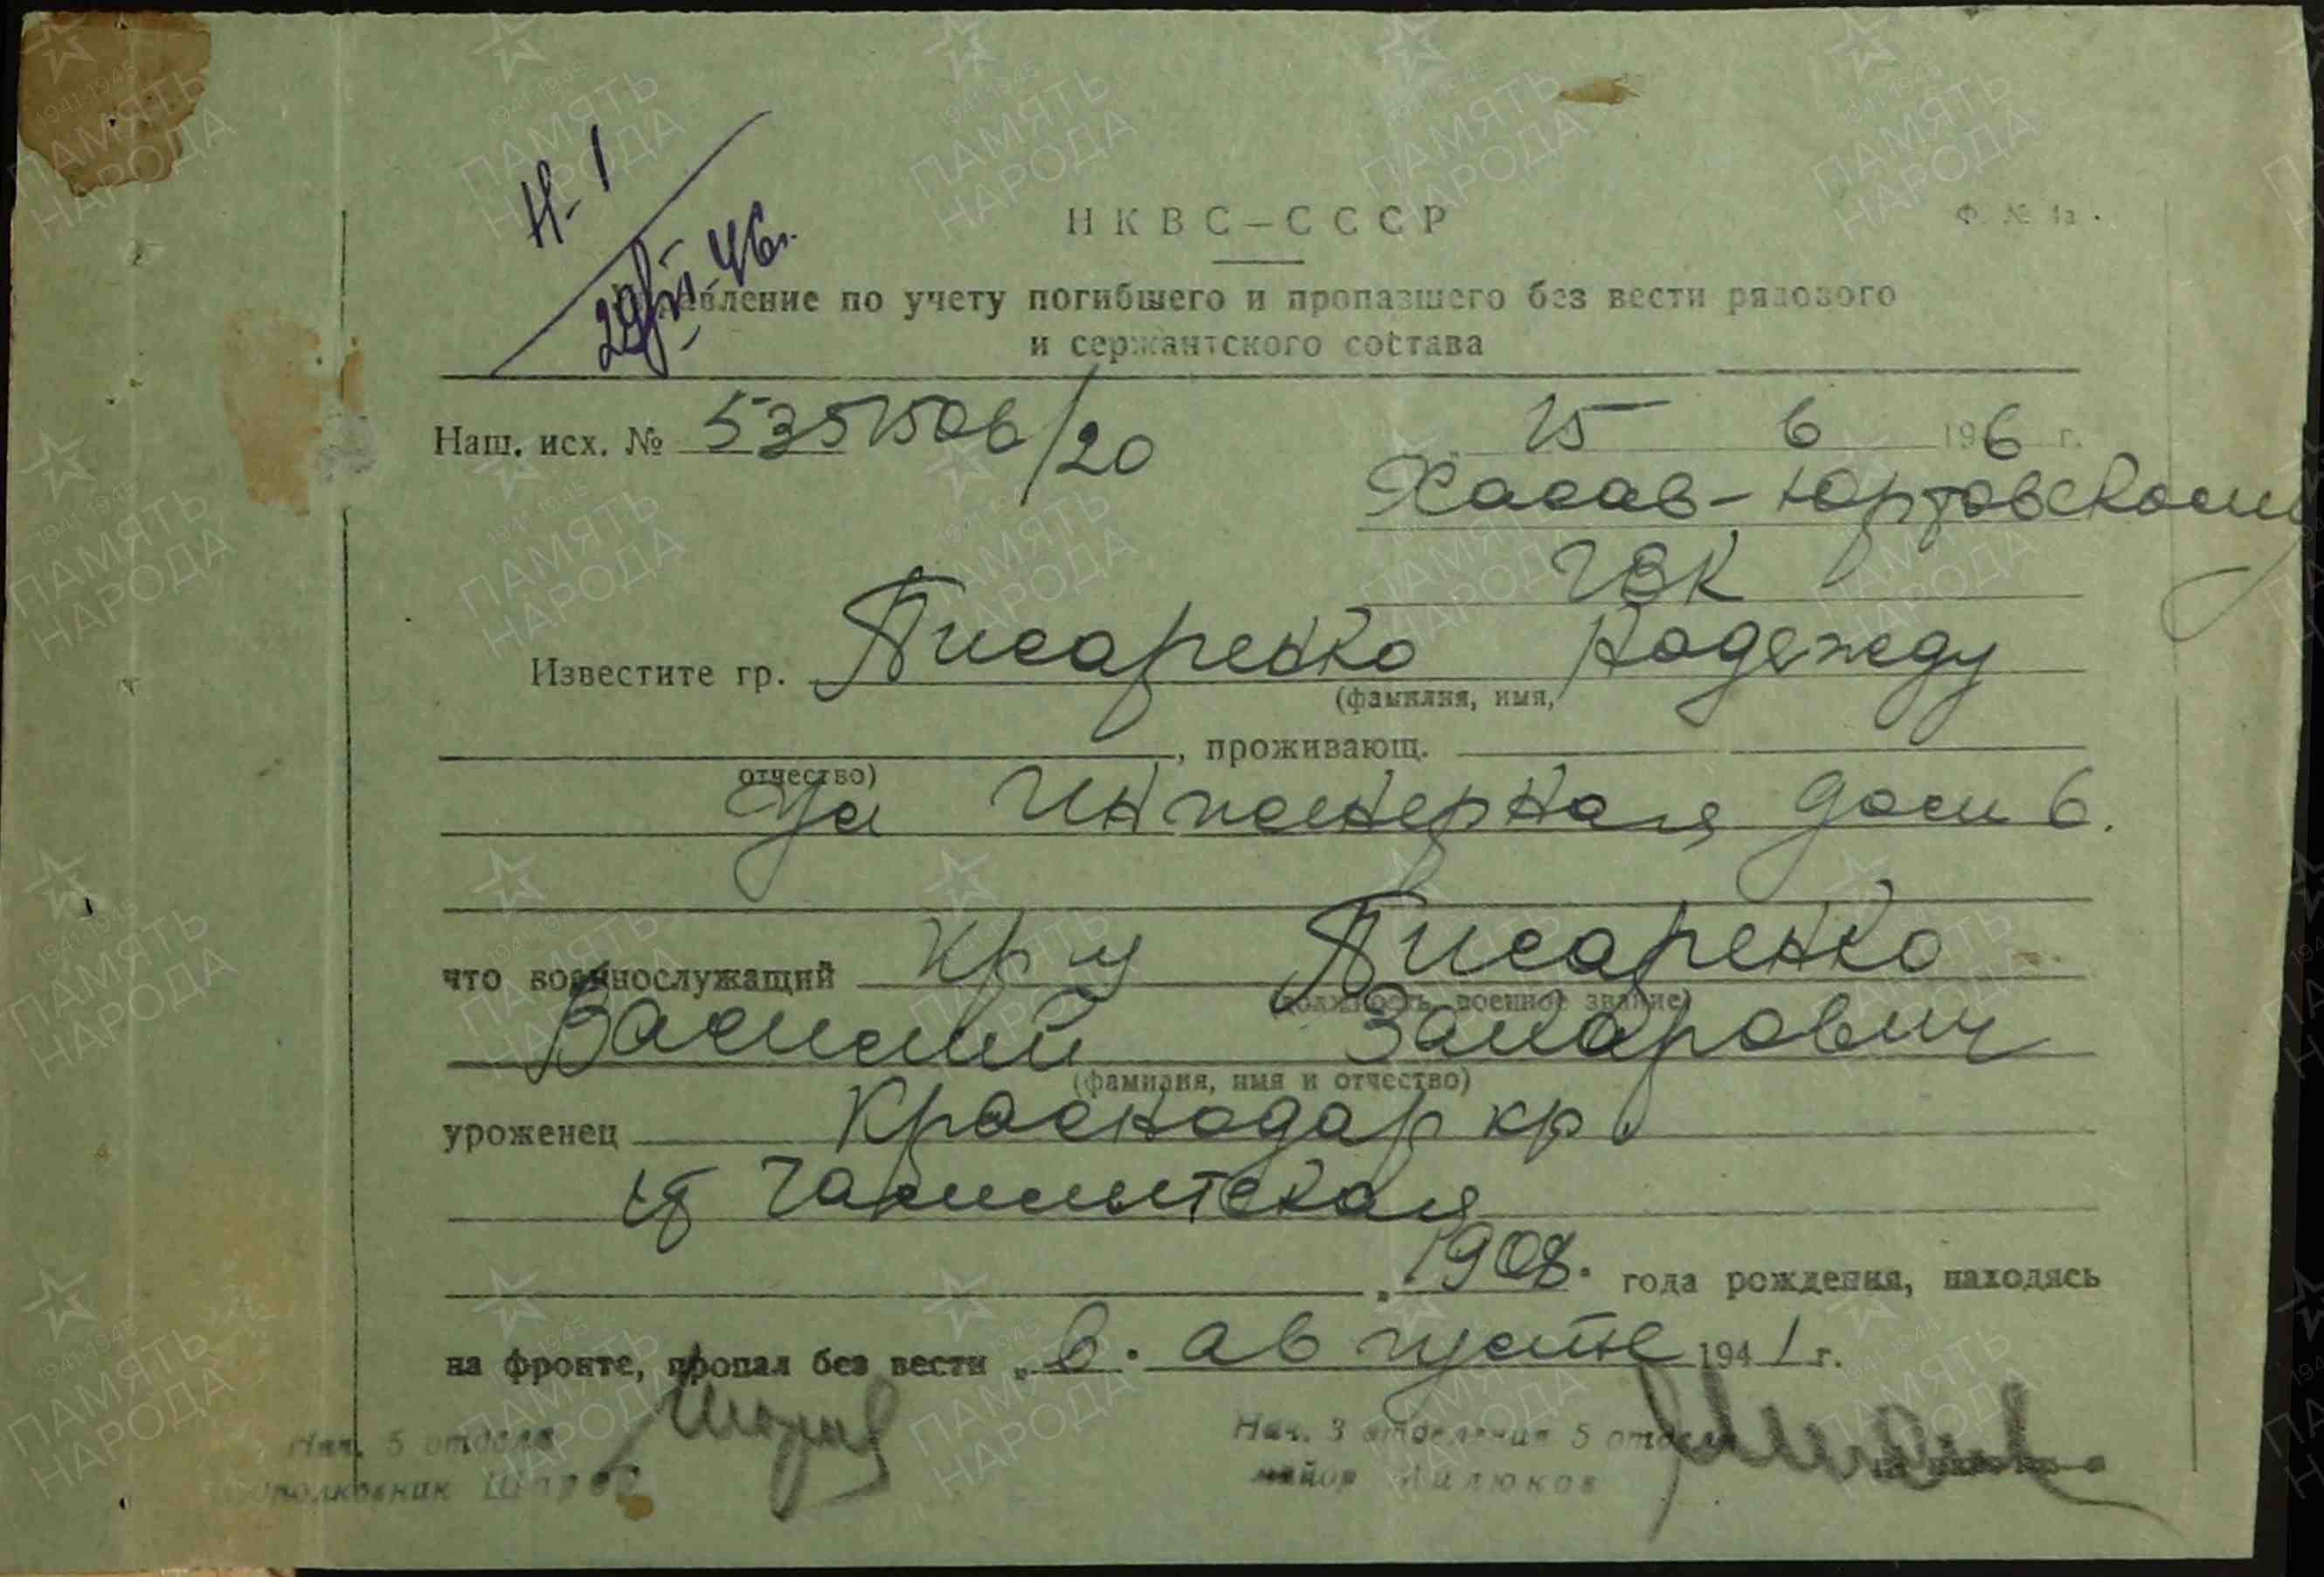 Н-1
29/VI-46г.
НКВС–СССР
Ф. № 1з.
Управление по учету погибшего и пропавшего без вести рядового
и сержантского состава
Наш. исх. № 5351506/20
15 6 1946 г.
Хасав-Юртовскому
ГВК
Известите гр. Писаренко Надежду
(фамилия, имя,
, проживающ.
отчество)
ул Инженерная дом 6.
что военнослужащий кр-ц Писаренко
(должность, военное звание)
Василий Захарович
(фамилия, имя и отчество)
уроженец Краснодар кр
1908. года рождения, находясь
на фронте, пропал без вести „в. августе 1941 г.
Нач. 5 отдела
Нач. 3 отделения 5 отдела
подполковник Шаров
майор Милюков
ПАМЯТЬ НАРОДА
1941-1945